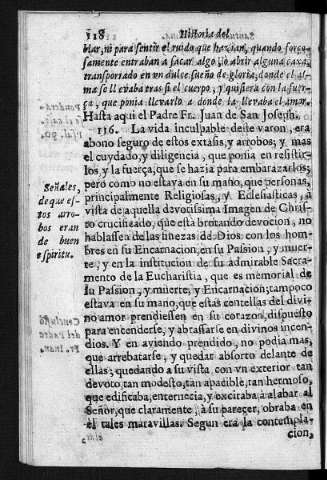 118 Historia del
blar, ni para sentir el ruido que hazian, quando forço-
samente entraban a sacar algo, ò abrir alguna caxa,
transportado en un dulce sueño de gloria; donde el al-
ma se llevaba tras si el cuerpo, y quisiera con la fuer-
ça, que ponia llevarlo a donde la llevaba el amor.
Hasta aqui el Padre Fr. Juan de San Joseph.
136. La vida inculpable deste varon, era
abono seguro de estos extasis, y arrobos; y mas
el cuydado, y diligencia, que ponia en resistir-
los, y la fuerça, que se hazia para embarazarlos;
pero como no estava en su mano, que personas,
principalmente Religiosas, y Eclesiasticas, à
vista de aquella devotissima Imagen de Chris-
to crucificado, que està brotando devocion, no
hablassen de las finezas de Dios con los hom-
bres en su Encarnacion, en su Passion, y muer-
te, y en la institucion de su admirable Sacra-
mento de la Eucharistia, que es memorial de
su Passion, y muerte, y Encarnacion; tampoco
estava en su mano, que estas centellas del divi-
no amor prendiessen en su corazon, dispuesto
para encenderse, y abrassarse en divinos incen-
dios. Y en aviendo prendido, no podia mas,
que arrebatarse, y quedar absorto delante de
ellas; quedando a su vista, con vn exterior tan
devoto, tan modesto, tan apacible, tan hermoso,
que edificaba, enternecia, y excitaba à alabar al
Señor, que claramente, à su parecer, obraba en
èl tales maravillas. Segun era la contempla-
cion,
Señales,
de que es-
tos arro-
bos eran
de buen
espiritu.